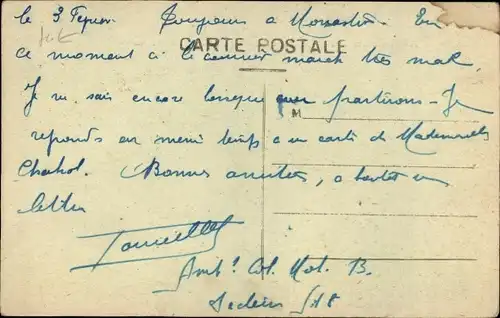 le 3 Février Toujours à Monastir. En
CARTE POSTALE
ce moment ci le courrier march très mal.
Je ne sais encore lorsque nous partirons - Je
M
reponds en meme temps a un carte de Mademoiselle
Chahol. Bonnes amities, a bientot un
lettre
Amb! Col. Mob. B.
Secteur 518